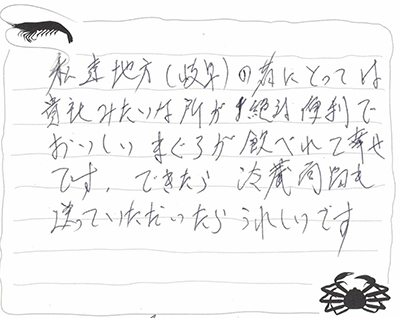 私達地方(岐阜)の者にとっては
貴社みたいな所が絶対便利で
おいしいまぐろが飲べれて幸せ
です、できたら 冷蔵 も
送っていただいたらうれしいです